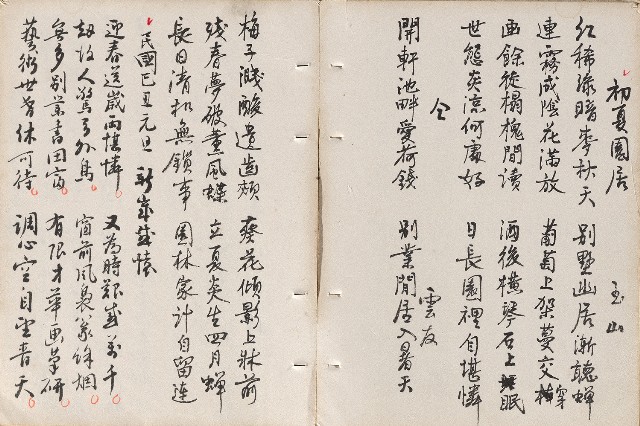 初夏園居 玉山
紅稀綠暗麥秋天 別墅幽居漸聽蟬
連霧成陰花滿放 葡萄上架蔓交穿
画餘徙榻槐間讀 酒後橫琴石上眠
世態炎涼何處好 日長園裡自堪憐
仝 雲友
開軒池畔愛荷錢 別業閒居入暑天
梅子濺酸遺齒頰 葵花傾影上牀前
殘春夢破薰風蝶 立夏炎生四月蟬
長日清和無鎖事 園林家計自留連
民國己丑元旦 新歲感懷
迎春送歲兩堪憐 又為時艱感萬千
劫 人驚弓外鳥 窗前風裊篆餘烟
無多別業書田富 有限才華画筆研
藝術世 休可待 調心空自望青天